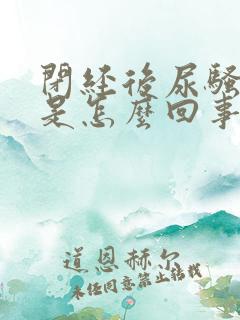 閉经後尿騷
是怎麼回事
道恩赫尔
未经同意禁止转载